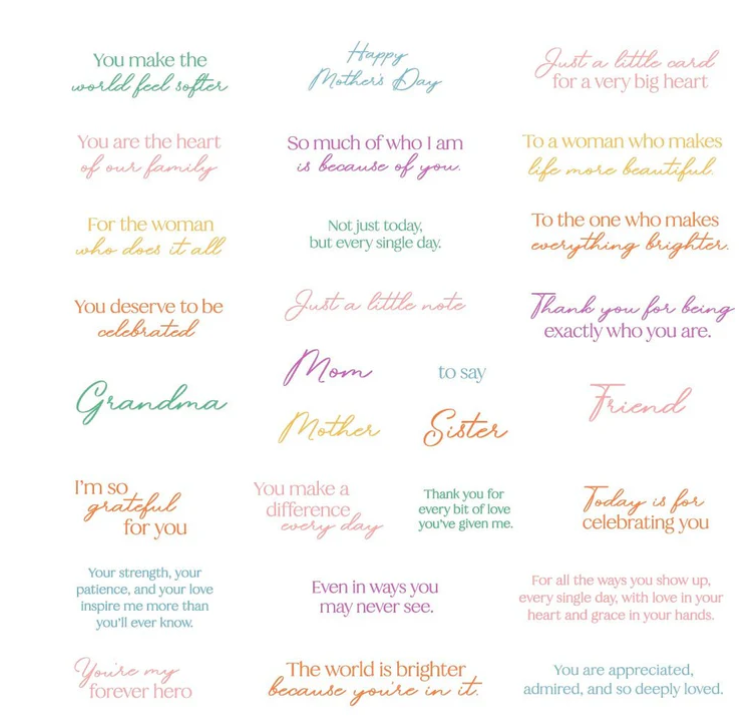 You make the
world feel softer
Happy
Mother's Day
Just a little card
for a very big heart
You are the heart
of our family
So much of who I am
is because of you.
To a woman who makes
life more beautiful.
For the woman
who does it all
Not just today,
but every single day.
To the one who makes
everything brighter.
You deserve to be
celebrated
Just a little note
Thank you for being
exactly who you are.
Mom
to say
Grandma
Mother
Sister
Friend
I'm so
grateful
for you
You make a
difference
every day
Thank you for
every bit of love
you've given me.
Today is for
celebrating you
Your strength, your
patience, and your love
inspire me more than
you'll ever know.
Even in ways you
may never see.
For all the ways you show up,
every single day, with love in your
heart and grace in your hands.
You're my
forever hero
The world is brighter
because you're in it.
You are appreciated,
admired, and so deeply loved.